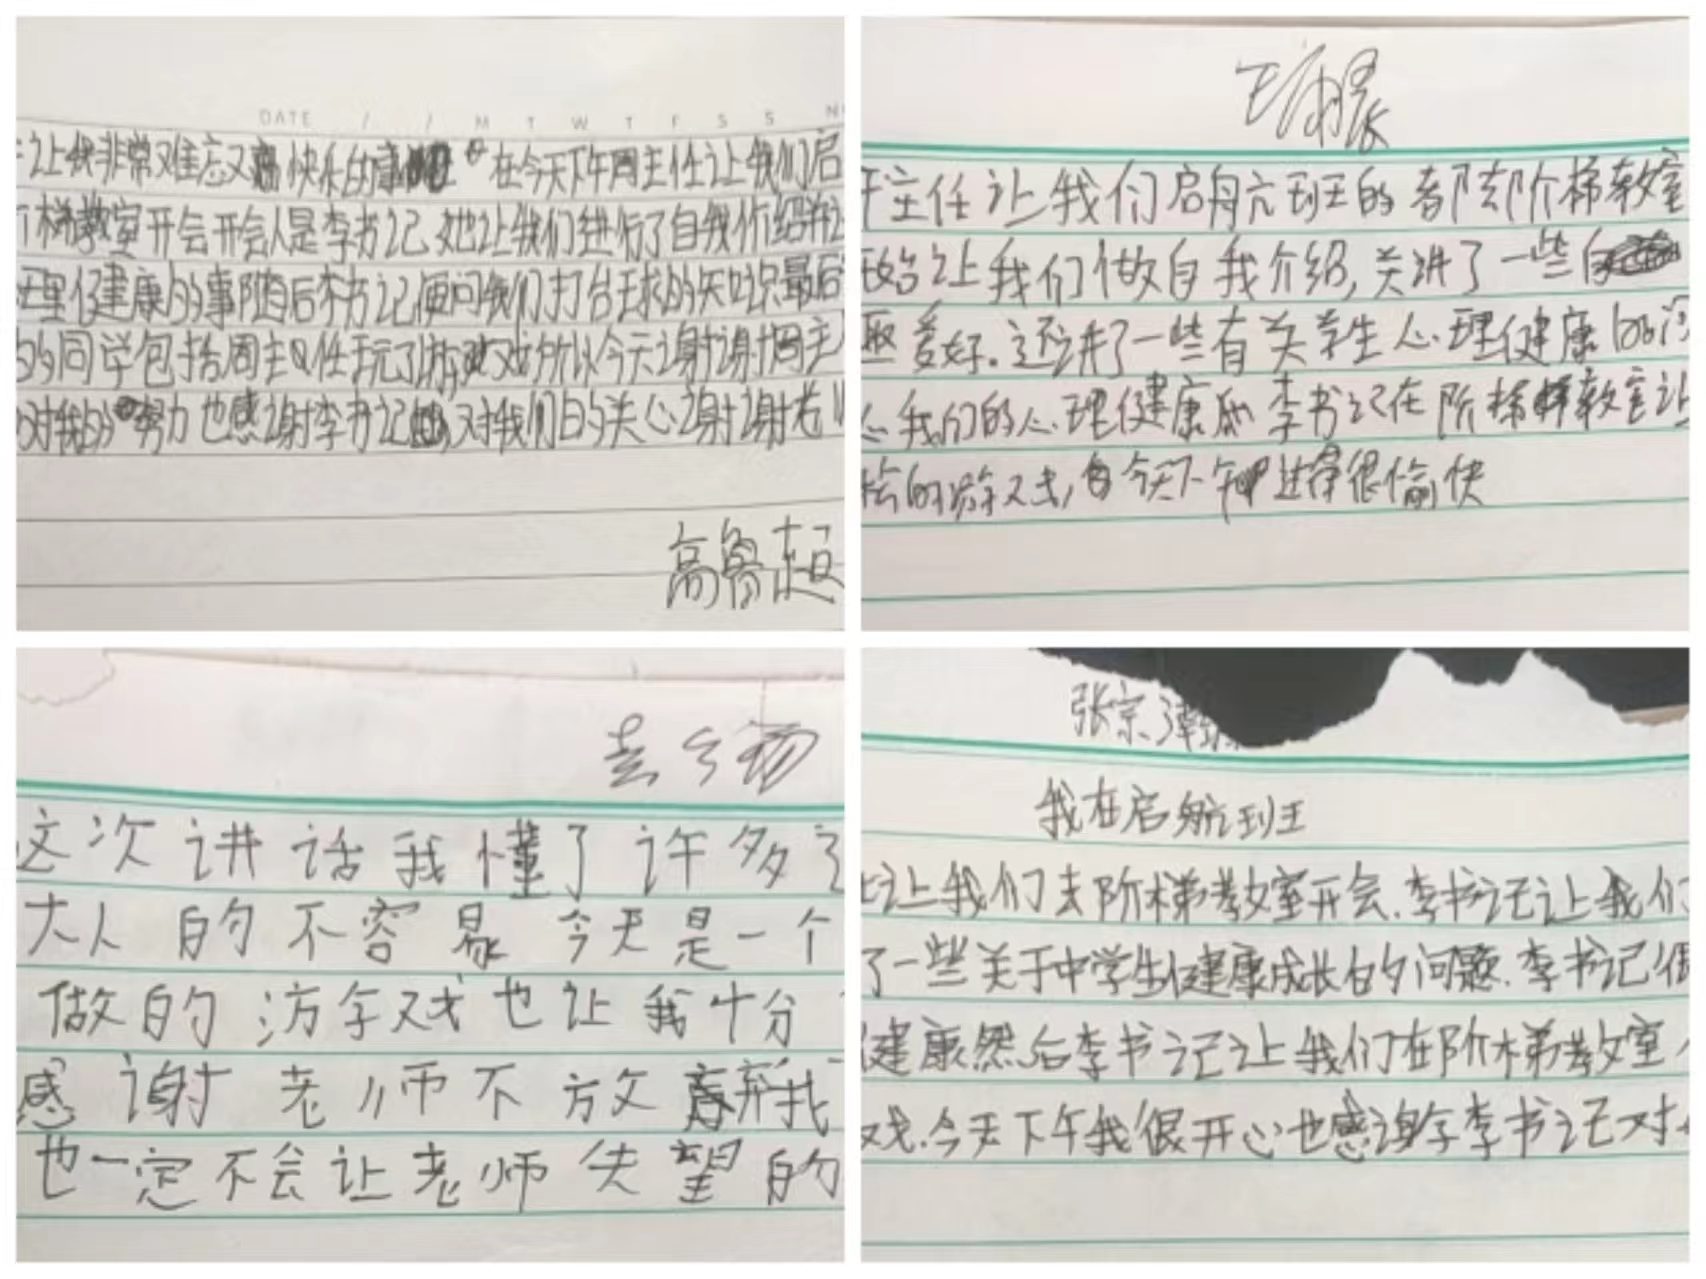 DATE / / M T W T F S S N
让我非常难忘又快乐的事 在今天下午周主任让我们启
梯教室开会开会人是李书记她让我们进行了自我介绍并
理健康的事随后李书记便问我们打台球的知识最后
的同学包括周主任玩了游戏所以今天谢谢周主
对我的努力也感谢李书记对我们的关心谢谢老
高鲁超
主任让我们启航班的都去阶梯教室
始让我们做自我介绍,关讲了一些自
爱好.还讲了一些有关学生心理健康的
我们的心理健康 李书记在阶梯教室让
的游戏,今天下午过得很愉快
这次讲话我懂了许多
大人的不容易今天是一个
做的游戏也让我十分
感谢老师不放弃我
也一定不会让老师失望的
张宗
我在启航班
让我们去阶梯教室开会.李书记让我们
了一些关于中学生健康成长的问题.李书记很
健康然后李书记让我们在阶梯教室
戏.今天下午我很开心也感谢李书记对